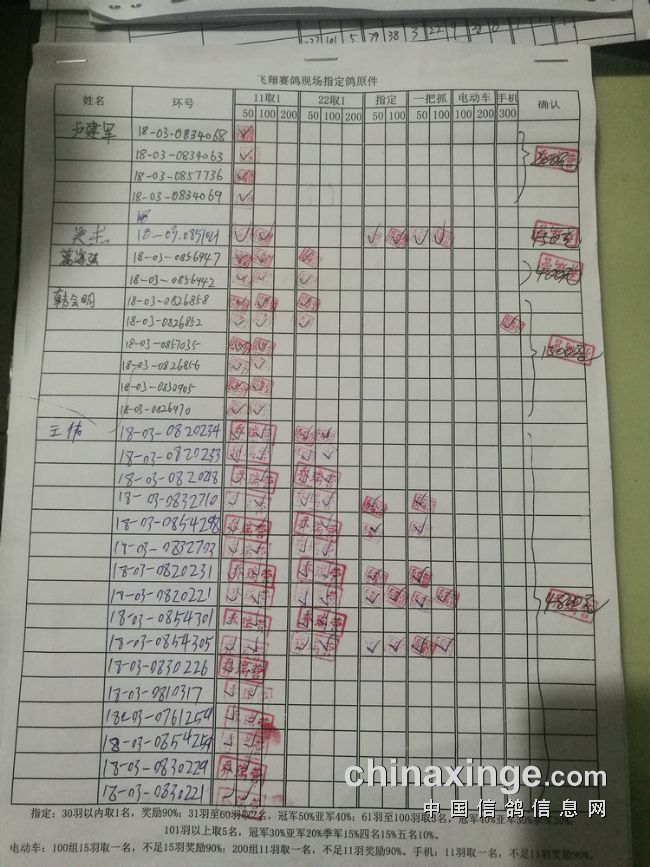 27 101 5 79 38 3 22 9
飞翔赛鸽现场指定鸽原件
姓名 环号 11取1 22取1 指定 一把抓 电动车 手机 确认
50 100 200 50 100 200 50 100 50 100 100 200 300
卢建军 18-03-0834068
18-03-0834063
18-03-0857736
18-03-0834069
18-03-
18-03-0856947
18-03-0856942
韩会明 18-03-0826858
18-03-0826852
18-03-0857035
18-03-0826856
18-03-0830905
18-03-0826970
王伟 18-03-0820234
18-03-0820233
18-03-0820218
18-03-0832710
18-03-0854298
18-03-0832703
18-03-0820231
18-03-0820221
18-03-0854301
18-03-0854305
18-03-0830226
18-03-0810317
18-03-0761254
18-03-0854254
18-03-0830229
18-03-0830221
chinaxinge.com
中国信鸽信息网
指定：30羽以内取1名，奖励90%；31羽至60羽取2名，冠军50%亚军40%；61羽至100羽取3名，冠军40%亚军30%季军20%；
101羽以上取5名，冠军30%亚军20%季军15%四名15%五名10%。
电动车：100组15羽取一名，不足15羽奖励90%；200组11羽取一名，不足11羽奖励90%。手机：11羽取一名，不足11羽奖励90%。